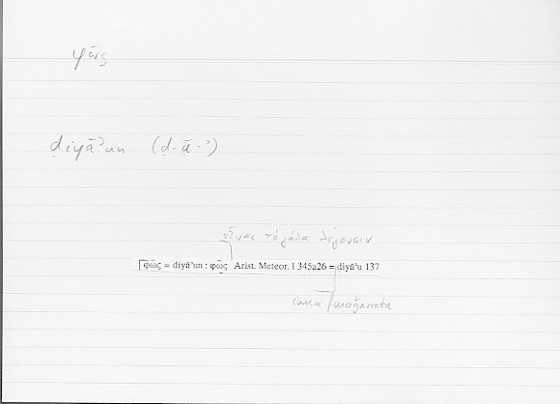 φῶς
ḍiyāʾun (ḍ-ā-ʾ)
εἶναι τὸ γάλα λέγουσιν
φῶς = ḍiyāʾun : φῶς Arist. Meteor. I 345a26 = ḍiyāʾu 137